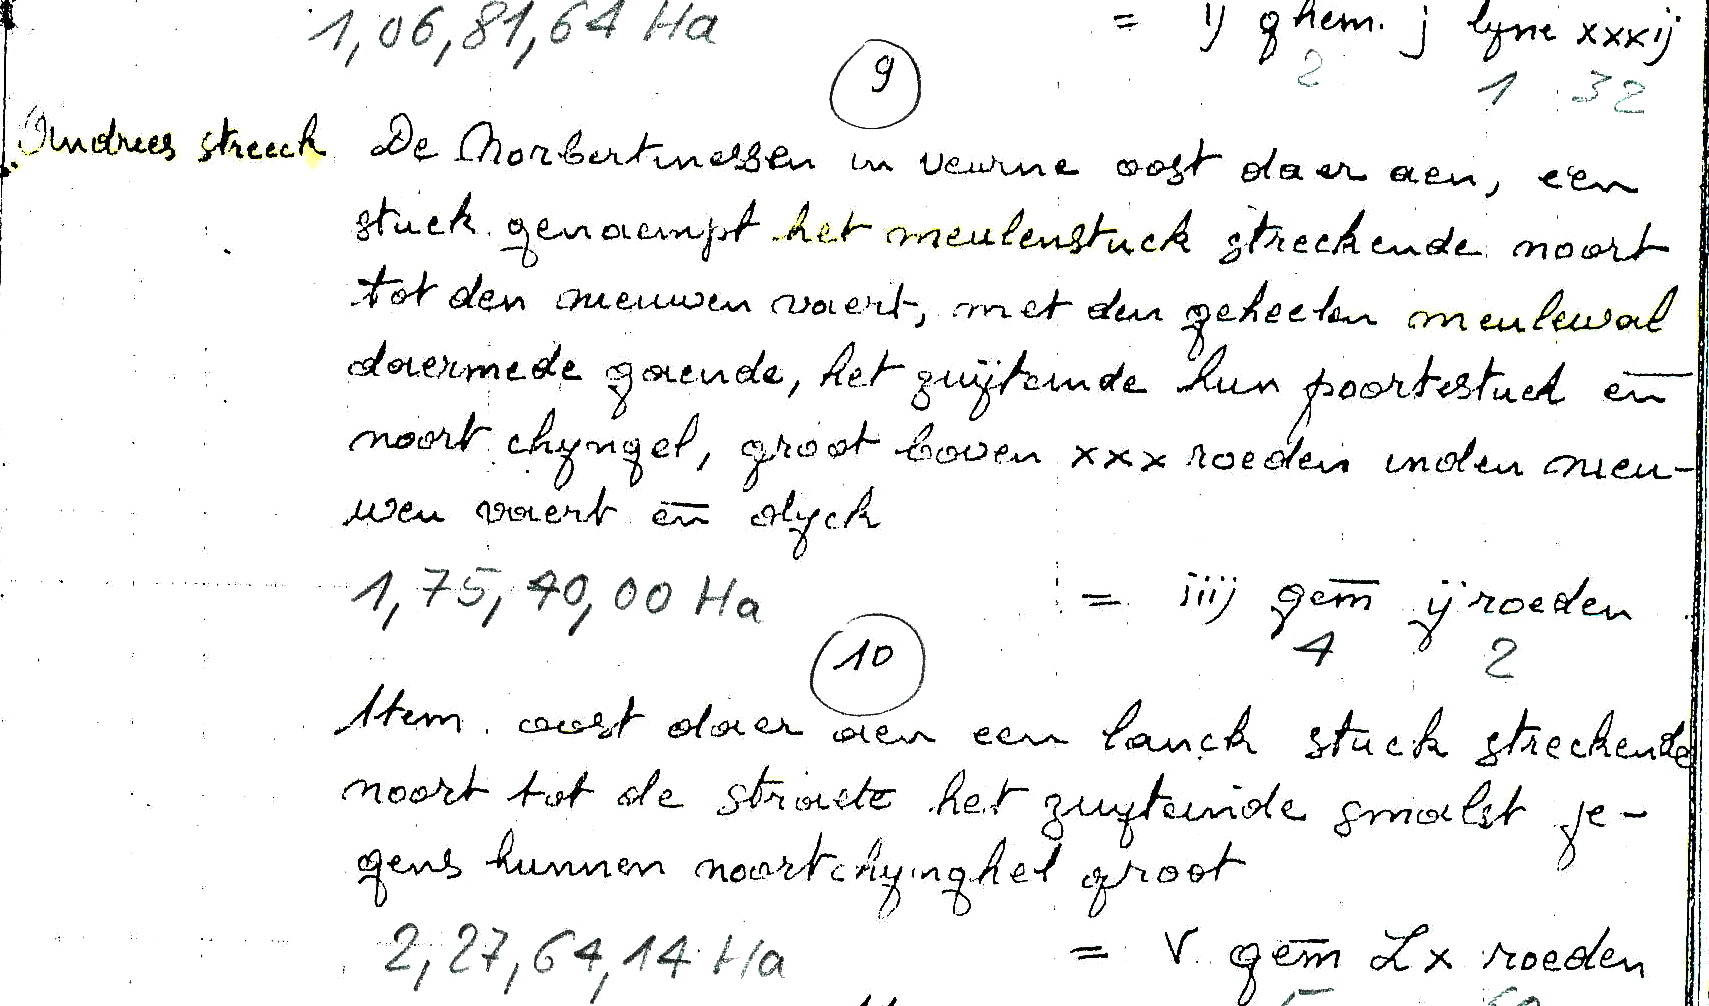 1,06,81,64 Ha = ij ghem. j lyne xxxij
2 1 32
9
Andries streeck De Norbertinessen in veurne oost daer aen, een
stuck genaempt het meulenstuck streckende noort
tot den nieuwen vaert, met den geheelen meulewal
daermede gaende, het zuijteinde hun poortestuck en̅
noort chyngel, groot boven xxx roeden inden nieu-
wen vaert en̅ dyck
1,75,40,00 Ha = iiij gem̅ ij roeden
4 2
10
Item oost daer aen een lanck stuck streckende
noort tot de straete het zuyteinde smalst je-
gens hunnen noortchyinghel groot
2,27,64,14 Ha = V gem̅ Lx roeden
5 60